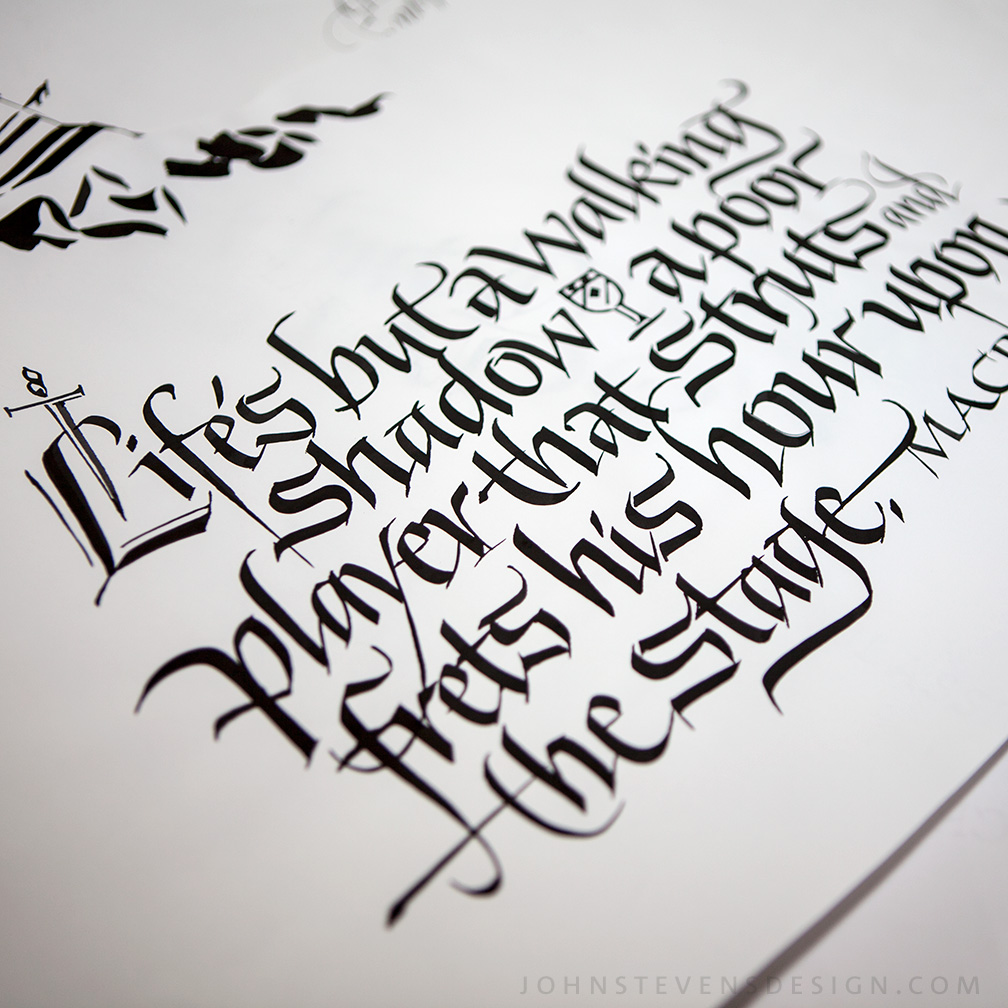 Life's but a walking
shadow a poor
player that struts and
frets his hour upon
the stage.
JOHNSTEVENSDESIGN.COM